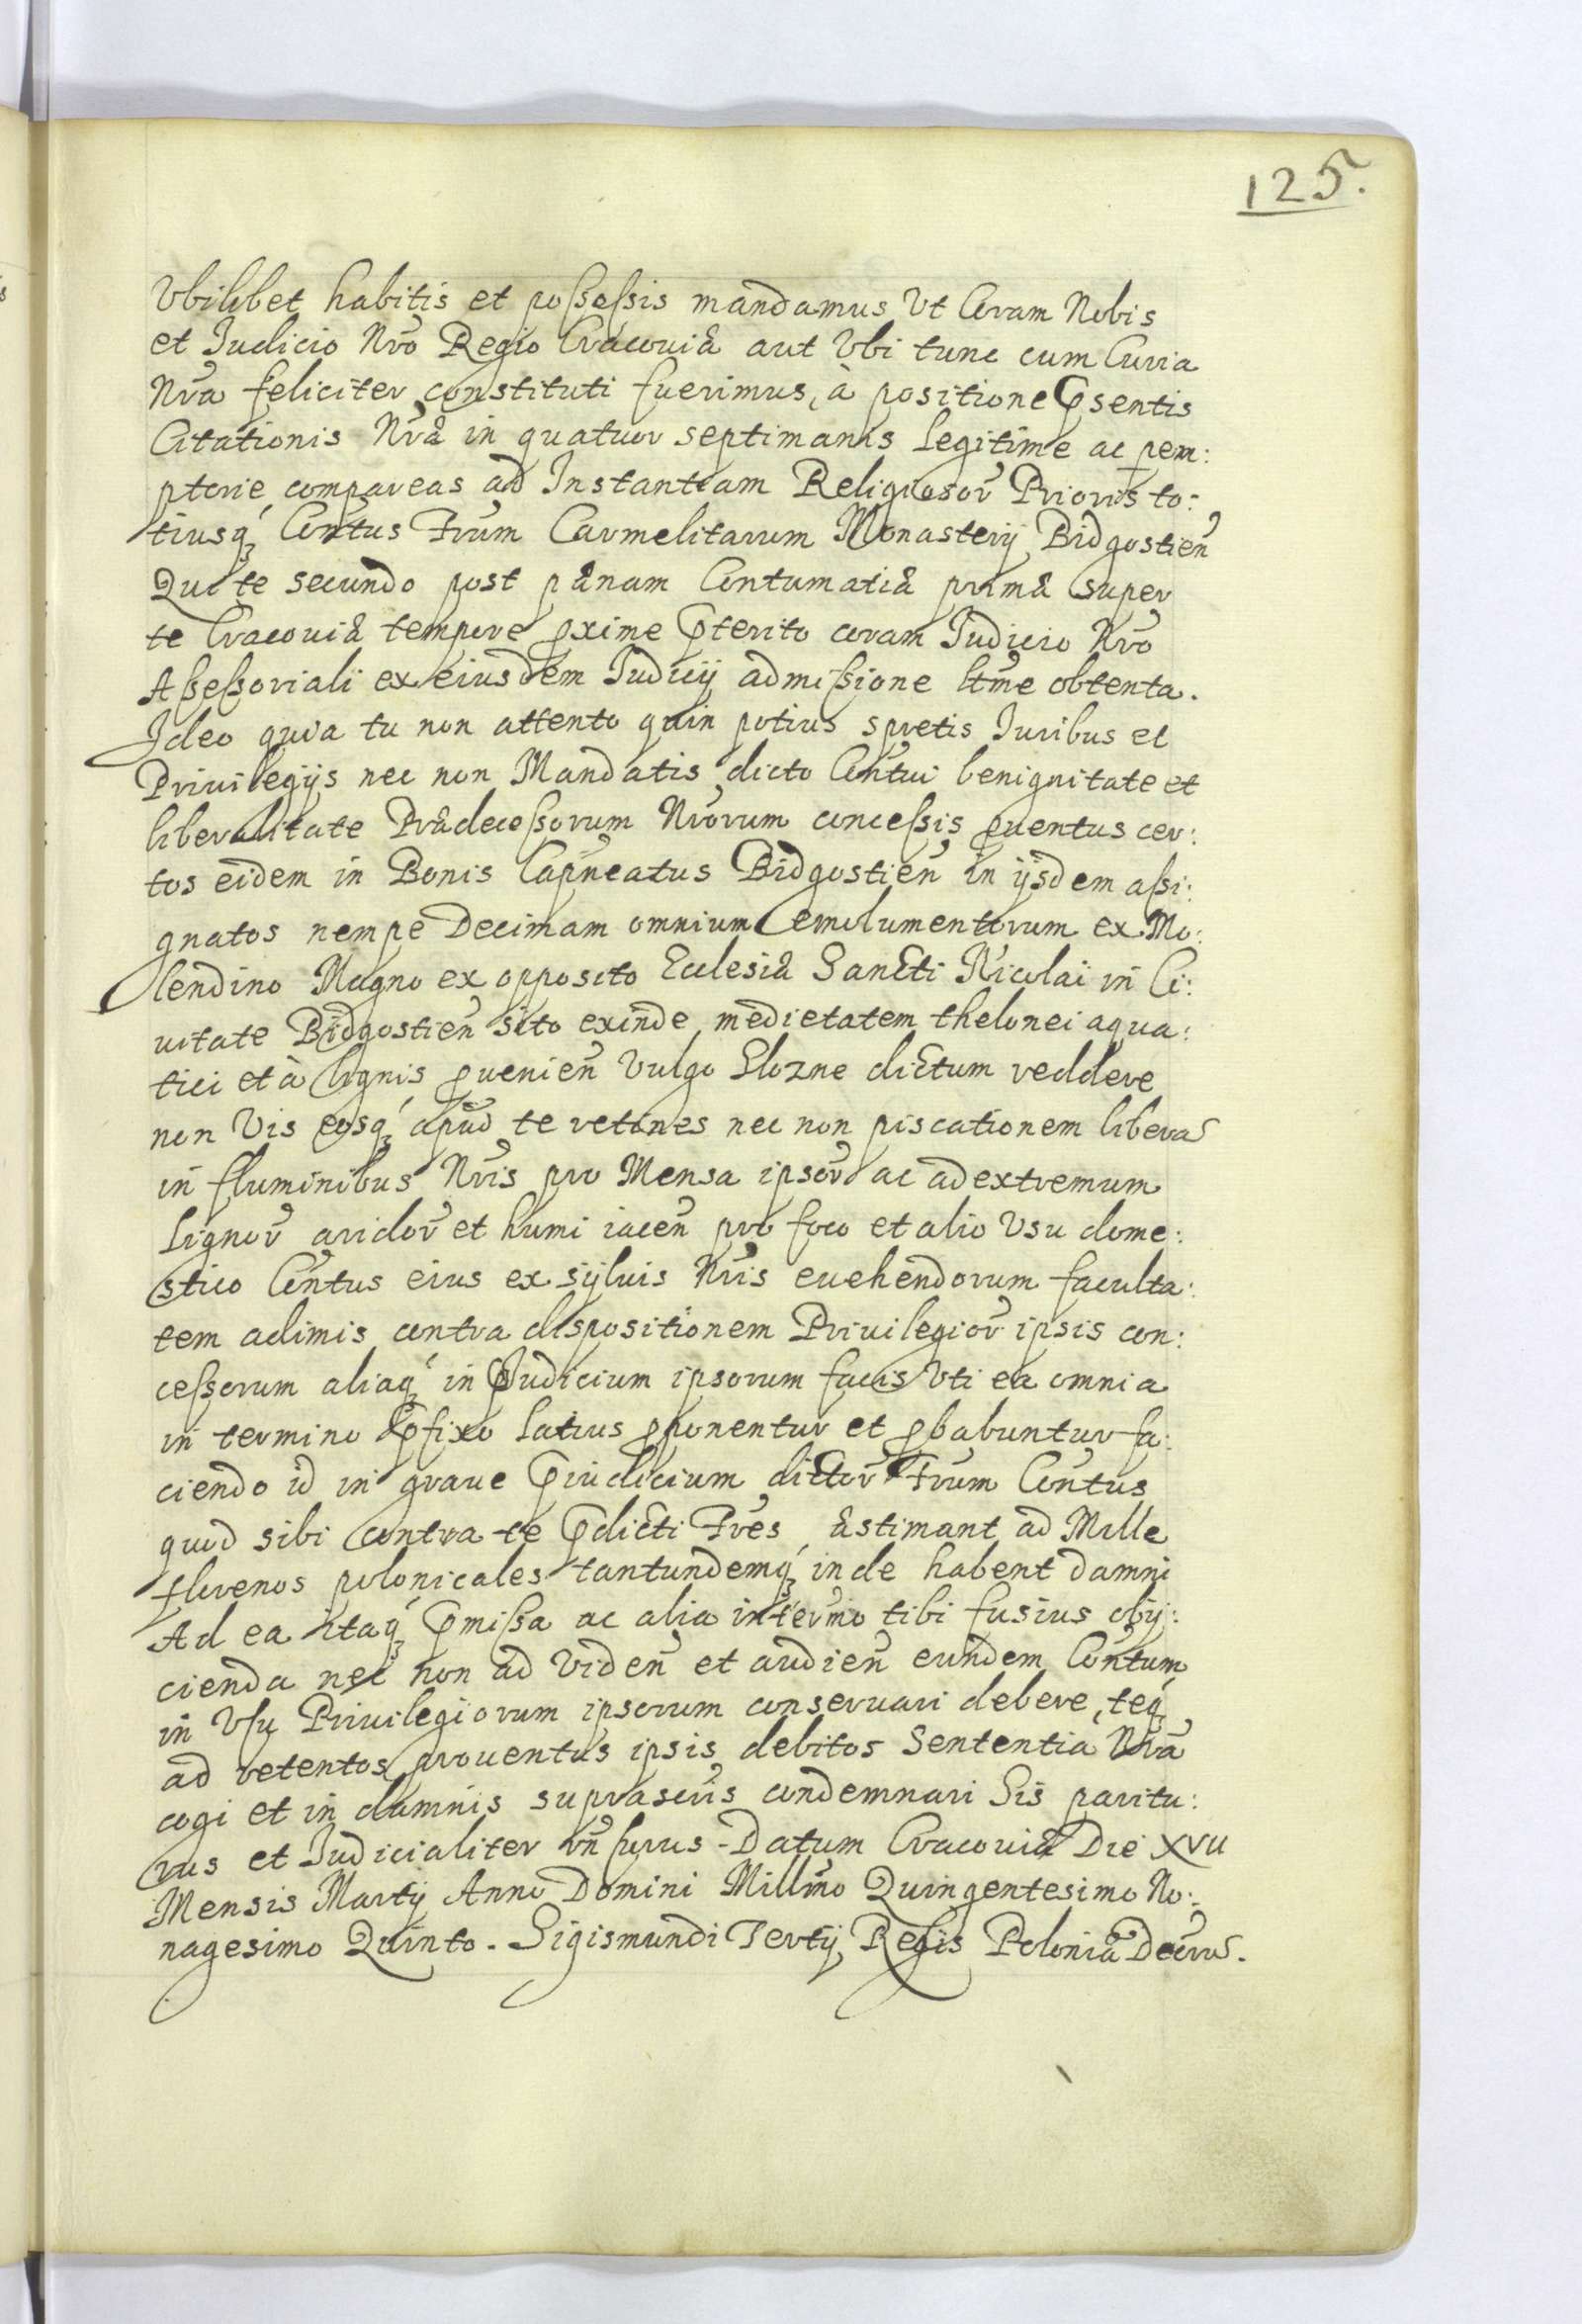 125.
Vbilibet habitis et possessis mandamus Vt Coram Nobis
et Iudicio Nrõ Regio Cracouiæ aut Vbi tunc cum Curia
Nrã feliciter constituti fuerimus, à positione Psentis
Citationis Nræ in quatuor septimanis legitime ac pem:
ptorie compareas ad Instantiam Religiosor̃ Prioris to:
tiusq́ꝫ Contus Frum Carmelitarum Monasterij Bidgostien̄
Qui te secundo post pænam Contumatiæ primæ super
te Cracouiæ tempore ꝓxime Pterito coram Iudicio Nrõ
Assessoriali ex eiusdem Iudicij admissione ltme obtenta.
Ideo quia tu non attento quin potius spretis Iuribus et
Priuilegijs nec non Mandatis dicto Contui benignitate et
liberalitate Prædecessorum Nrorum concessis ꝓuentus cer:
tos eidem in Bonis Capneatus Bidgostien̄ in ijsdem assi:
gnatos nempe Decimam omnium emolumentorum ex Mo:
lendino Magno ex opposito Ecclesiæ Sancti Nicolai in Ci:
uitate Bidgostien̄ sito exinde medietatem thelonei aqua:
tici et à lignis ꝓuenien̄ Vulgo Slozne dictum reddere
non Vis eosq́ꝫ apud te retines nec non piscationem liberã
in fluminibus Nris pro Mensa ipsor̃ ac ad extremum
Lignor̃ aridor̃ et humi iacen̄ pro foco et alio Vsu dome:
stico Contus eius ex syluis Nris euehendorum faculta:
tem adimis contra dispositionem Priuilegior̃ ipsis con:
cessorum aliaq́ꝫ in Pjudicium ipsorum facis Vti ea omnia
in termino Pfixo latius ꝓponentur et ꝓbabuntur fa:
ciendo id in graue Piudicium dictor̃ Frum Contus
quod sibi contra te Pdicti Fres æstimant ad Mille
florenos polonicales tantundemq́ꝫ inde habent damni
Ad ea itaq́ꝫ Pmissa ac alia in termo tibi fusius obij:
cienda nec non ad Viden̄ et audien̄ eundem Contum
in Vsu Priuilegiorum ipsorum conseruari debere, teq́ꝫ
ad retentos prouentus ipsis debitos Sententia Nrã
cogi et in damnis suprascris condemnari Sis paritu:
rus et Iudicialiter rñsurus - Datum Cracouiæ Die XVII
Mensis Martij Anno Domini Millmo Quingentesimo No:
nagesimo Quinto. Sigismundi Tertij Regis Poloniæ Decrũ.